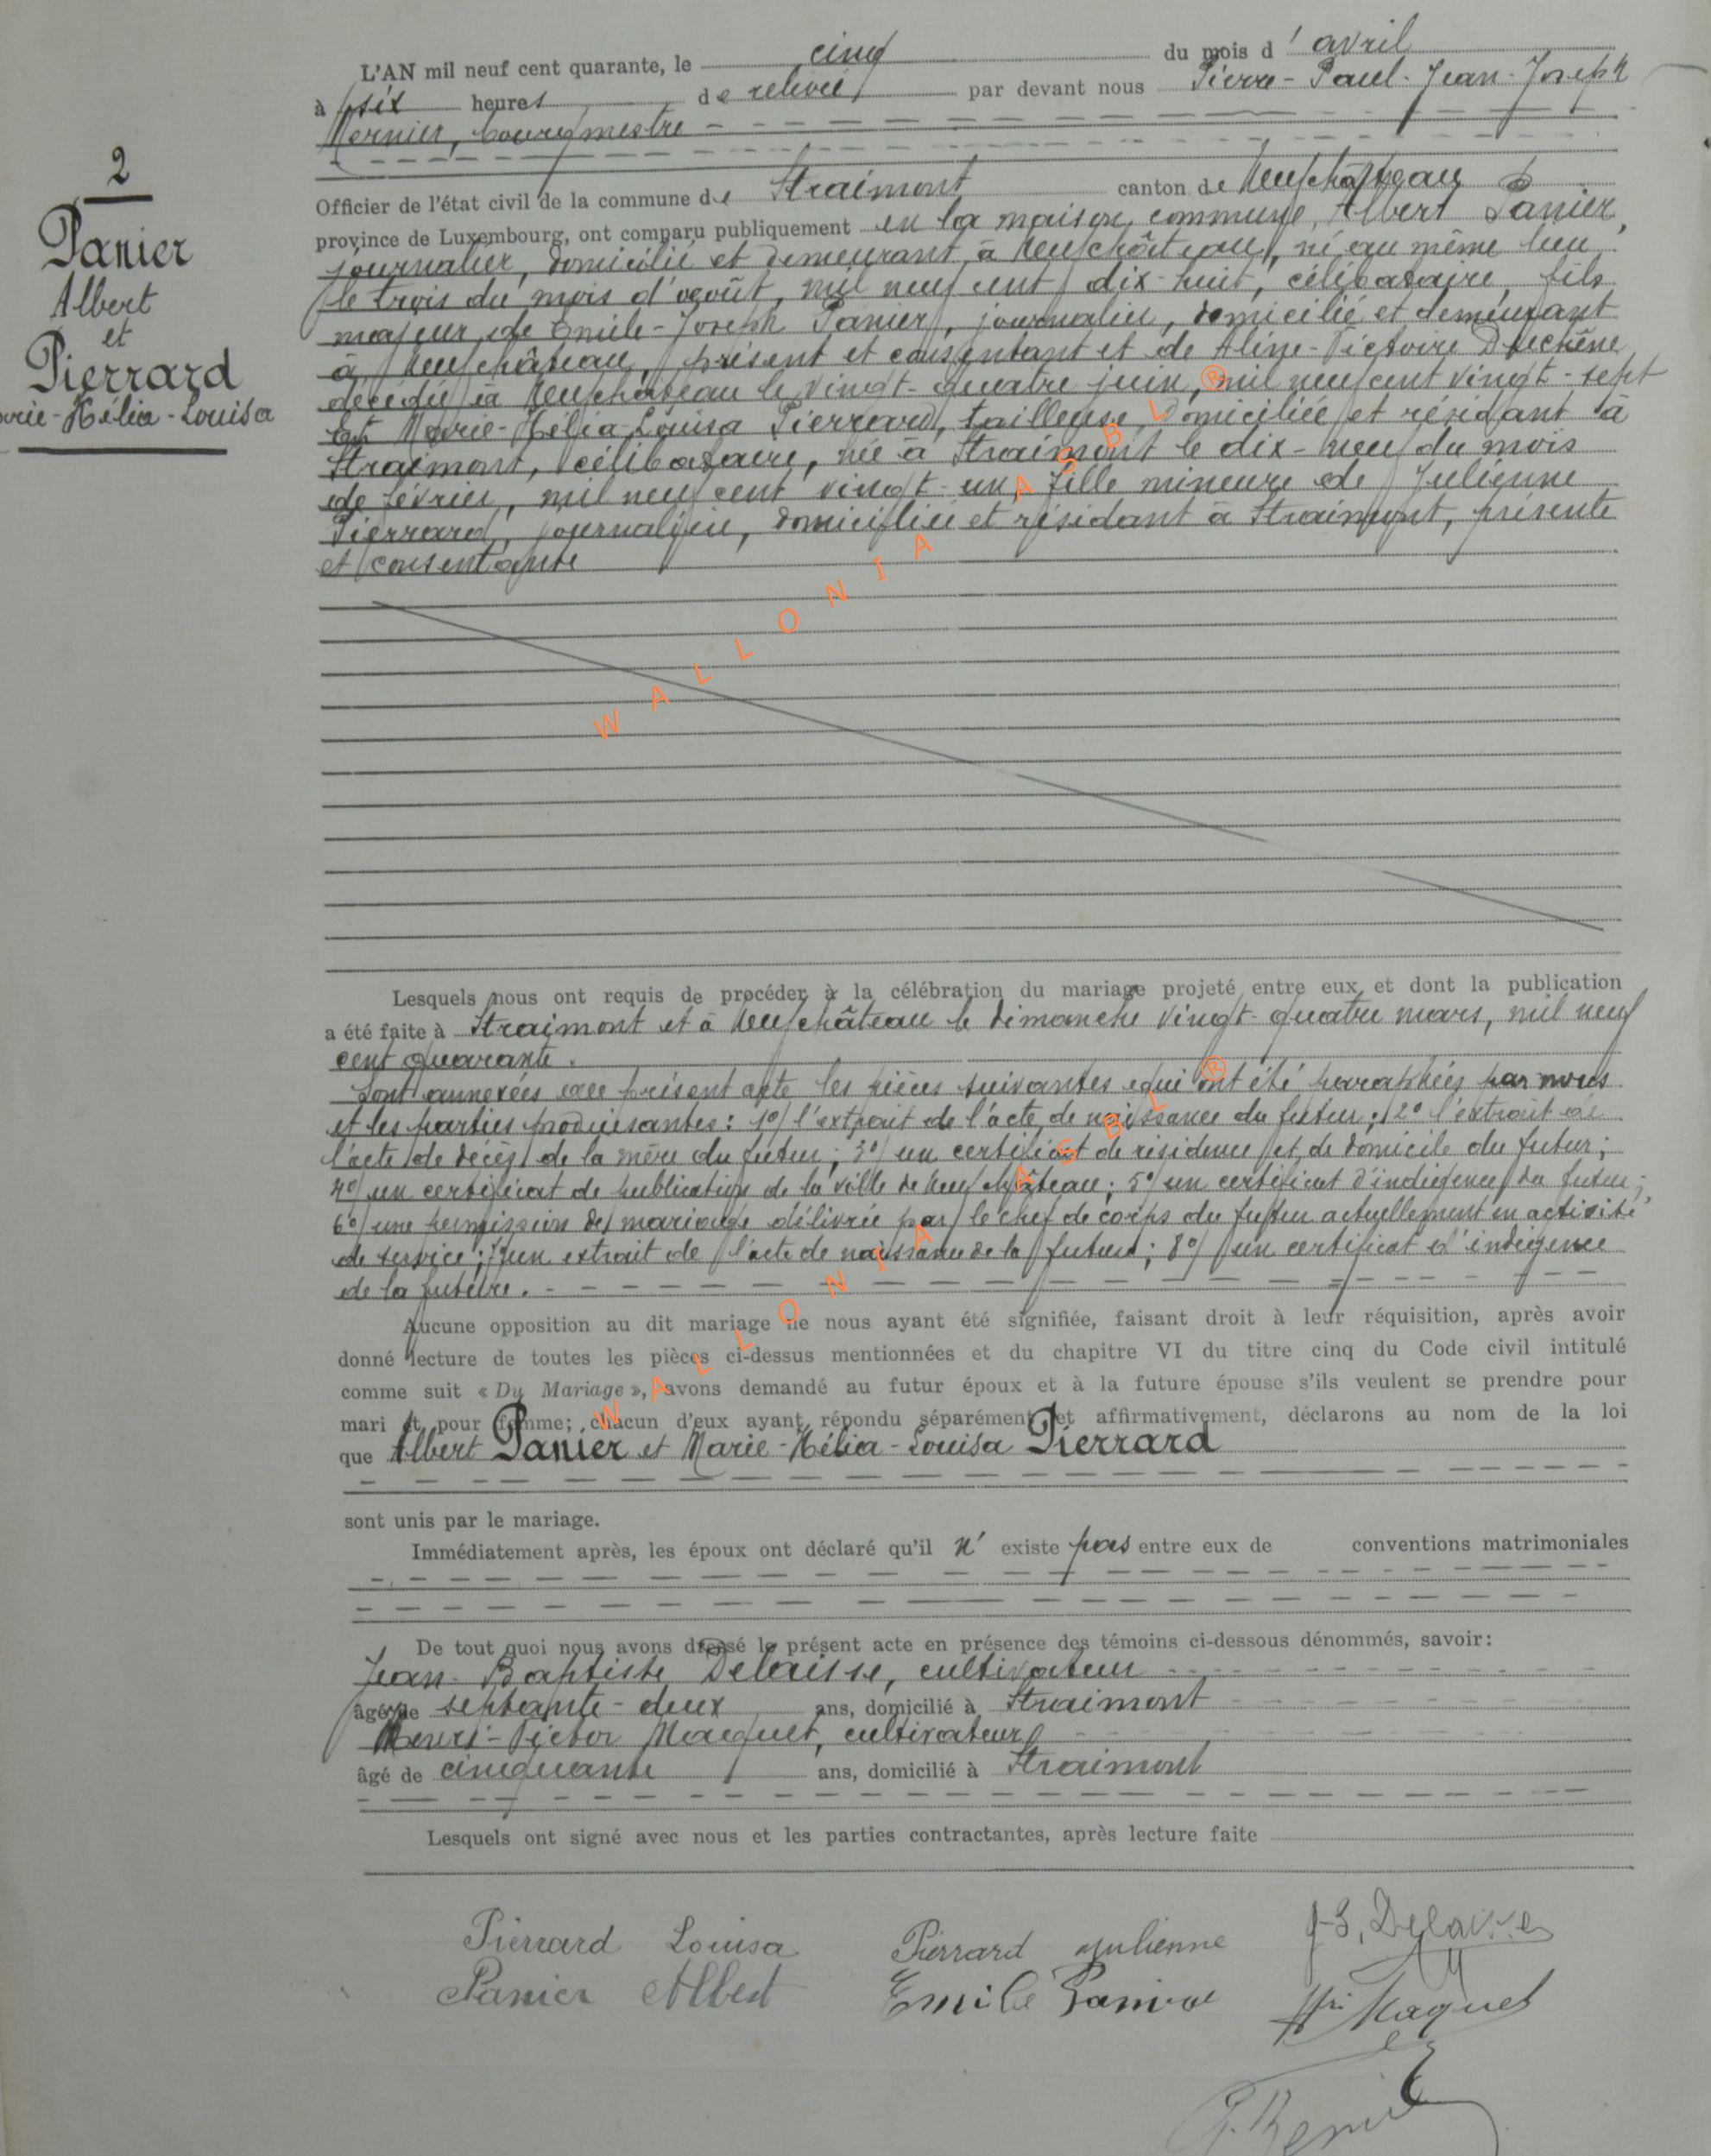 L'AN mil neuf cent quarante, le cinq du mois d'avril
à six heures de relevée par devant nous Pierre-Paul-Jean-Joseph
bourgmestre
Officier de l'état civil de la commune de Straimont canton de Neufchâteau
province de Luxembourg, ont comparu publiquement en la maison commune, Albert Panier,
journalier, domicilié et demeurant à Neufchâteau, né au même lieu
le trois du mois d'août, mil neuf cent dix-huit, célibataire, fils
majeur de Emile-Joseph Panier, journalier, domicilié et demeurant
à Neufchâteau, présent et consentant et de Aline-Victoire Duchêne
décédée à Neufchâteau le vingt-quatre juin, mil neuf cent vingt-sept
Et Marie-Hélia-Louisa Pierrard, tailleuse, domiciliée et résidant à
Straimont, célibataire, née à Straimont le dix-neuf du mois
de février, mil neuf cent vingt-un, fille mineure de Julienne
Pierrard, journalière, domiciliée et résidant à Straimont, présente
et consentante
2
Panier
Albert
et
Pierrard
arie-Hélia-Louisa
Lesquels nous ont requis de procéder à la célébration du mariage projeté entre eux et dont la publication
a été faite à Straimont et à Neufchâteau le dimanche vingt-quatre mars, mil neuf
cent quarante.
Sont annexées au présent acte les pièces suivantes qui ont été paraphées par nous
et les parties produisantes: 1°/ l'extrait de l'acte de naissance du futur; 2° l'extrait de
l'acte de décès de la mère du futur; 3°/ un certificat de résidence et de domicile du futur;
4°/ un certificat de publication de la ville de Neufchâteau; 5°/ un certificat d'indigence du futur;
6°/ une permission de mariage délivrée par le chef de corps du futur actuellement en activité
de service; 7° un extrait de l'acte de naissance de la future; 8°/ un certificat d'indigence
de la future.
Aucune opposition au dit mariage ne nous ayant été signifiée, faisant droit à leur réquisition, après avoir
donné lecture de toutes les pièces ci-dessus mentionnées et du chapitre VI du titre cinq du Code civil intitulé
comme suit « Du Mariage », avons demandé au futur époux et à la future épouse s'ils veulent se prendre pour
mari et pour femme; chacun d'eux ayant répondu séparément et affirmativement, déclarons au nom de la loi
que Albert Panier et Marie-Hélia-Louisa Pierrard
sont unis par le mariage.
Immédiatement après, les époux ont déclaré qu'il n'existe pas entre eux de conventions matrimoniales
De tout quoi nous avons dressé le présent acte en présence des témoins ci-dessous dénommés, savoir:
Jean-Baptiste Delaisse, cultivateur
âgé de septante-deux ans, domicilié à Straimont
Henri-Victor Maquet, cultivateur
âgé de cinquante ans, domicilié à Straimont
Lesquels ont signé avec nous et les parties contractantes, après lecture faite
Pierrard Louisa Pierrard Julienne J-B. Delaisse
Panier Albert Emile Panier Hri Maquet
WALLONIA ASBL ®
WALLONIA ASBL ®